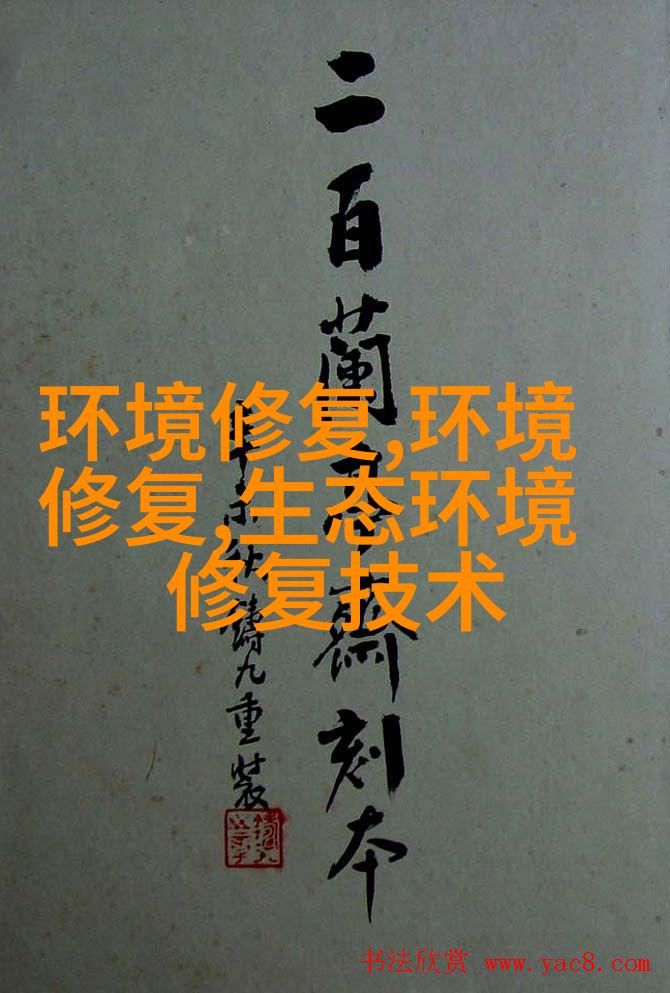 二百蘭亭齋刻本
未秋鑄九重裝
环境修复,环境
修复,生态环境
修复技术
书法欣赏 www.yac8.com